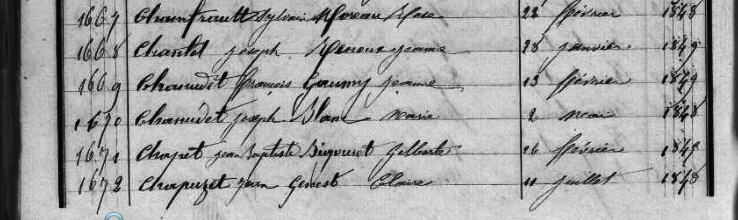 1667 Chamfrault Sylvain Moreau Rose 22 février 1848
1668 Chanlot Joseph Renoux Jeanne 28 janvier 1849
1669 Chanudet François Gaumy Jeanne 13 février 1849
1670 Chanudet Joseph Blanc Marie 2 mai 1848
1671 Chapet Jean Baptiste Gilberte 26 février 1848
1672 Chapuzet Jean Genest Claire 11 juillet 1848